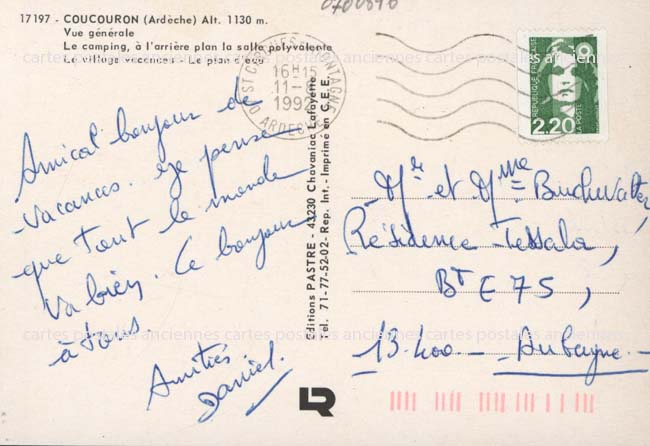 17197 - COUCOURON (Ardèche) Alt. 1130 m.
Vue générale
Le camping, à l'arrière plan la salle polyvalente
Le village vacances - Le plan d'eau
16H15
11-
1992
ARDECHE
REPUBLIQUE FRANÇAISE
2,20
LA POSTE
Amical bonjour de
vacances. Je pense
que tout le monde
va bien. Le bonjour
à tous.
Amitiés
Daniel.
Editions PASTRE - 43230 Chavaniac Lafayette
Tel: 71-77-52-02 - Rep. Int. - Imprimé en C.E.E.
Mr et Mme Buchwalter,
Résidence Tessala,
BT E 75,
13.400 - Aubagne -
cartes postales anciennes cartes postales anciennes cartes postales anciennes
cartes postales anciennes cartes postales anciennes cartes postales anciennes